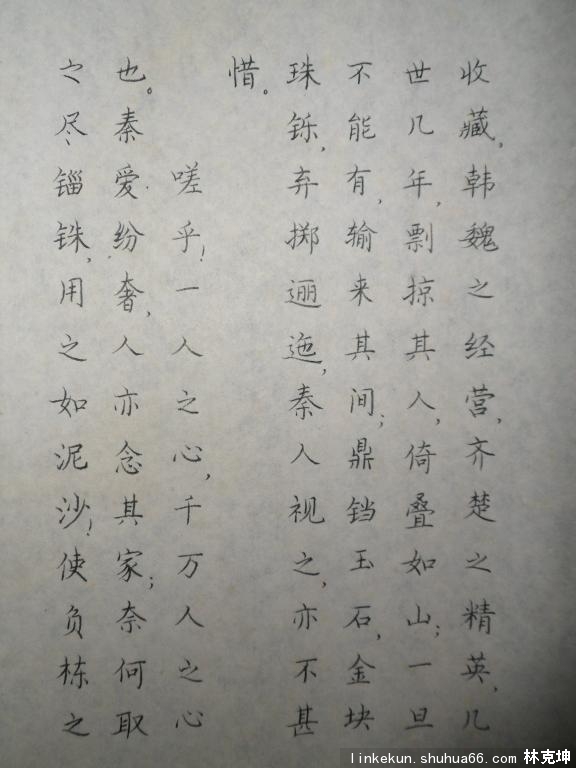 收藏，韩魏之经营，齐楚之精英，几
世几年，剽掠其人，倚叠如山；一旦
不能有，输来其间；鼎铛玉石，金块
珠铄，弃掷逦迤，秦人视之，亦不甚
惜。
嗟乎！一人之心，千万人之心
也。秦爱纷奢，人亦念其家；奈何取
之尽锱铢，用之如泥沙！使负栋之
linkekun.shuhua66.com 林克坤